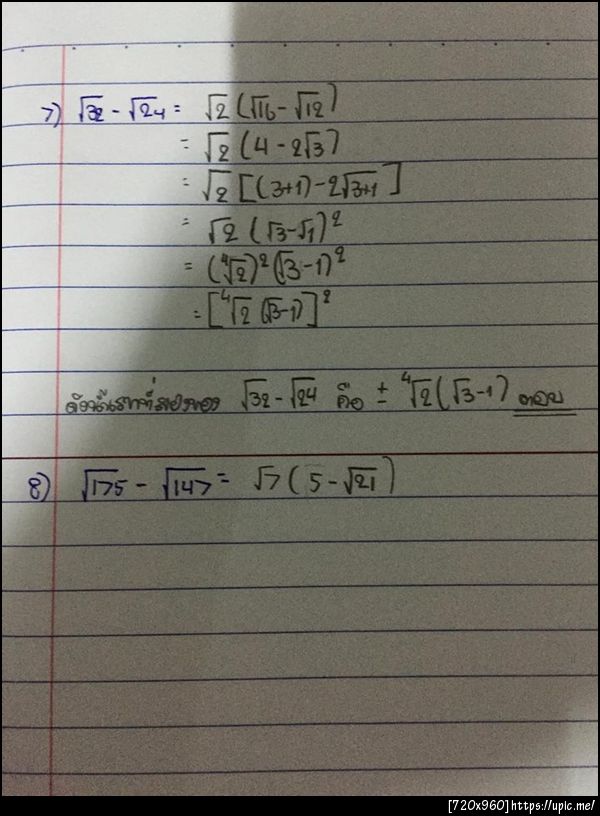 7) √32 - √24 = √2 (√16 - √12)
= √2 (4 - 2√3)
= √2 [(3+1) - 2√3+1]
= √2 (√3-√1)²
= (⁴√2)²(√3-1)²
= [⁴√2 (√3-1)]²
ดังนั้นรากที่สองของ √32 - √24 คือ ± ⁴√2(√3-1) ตอบ
8) √175 - √147 = √7 (5 - √21)
[720x960]https://upic.me/